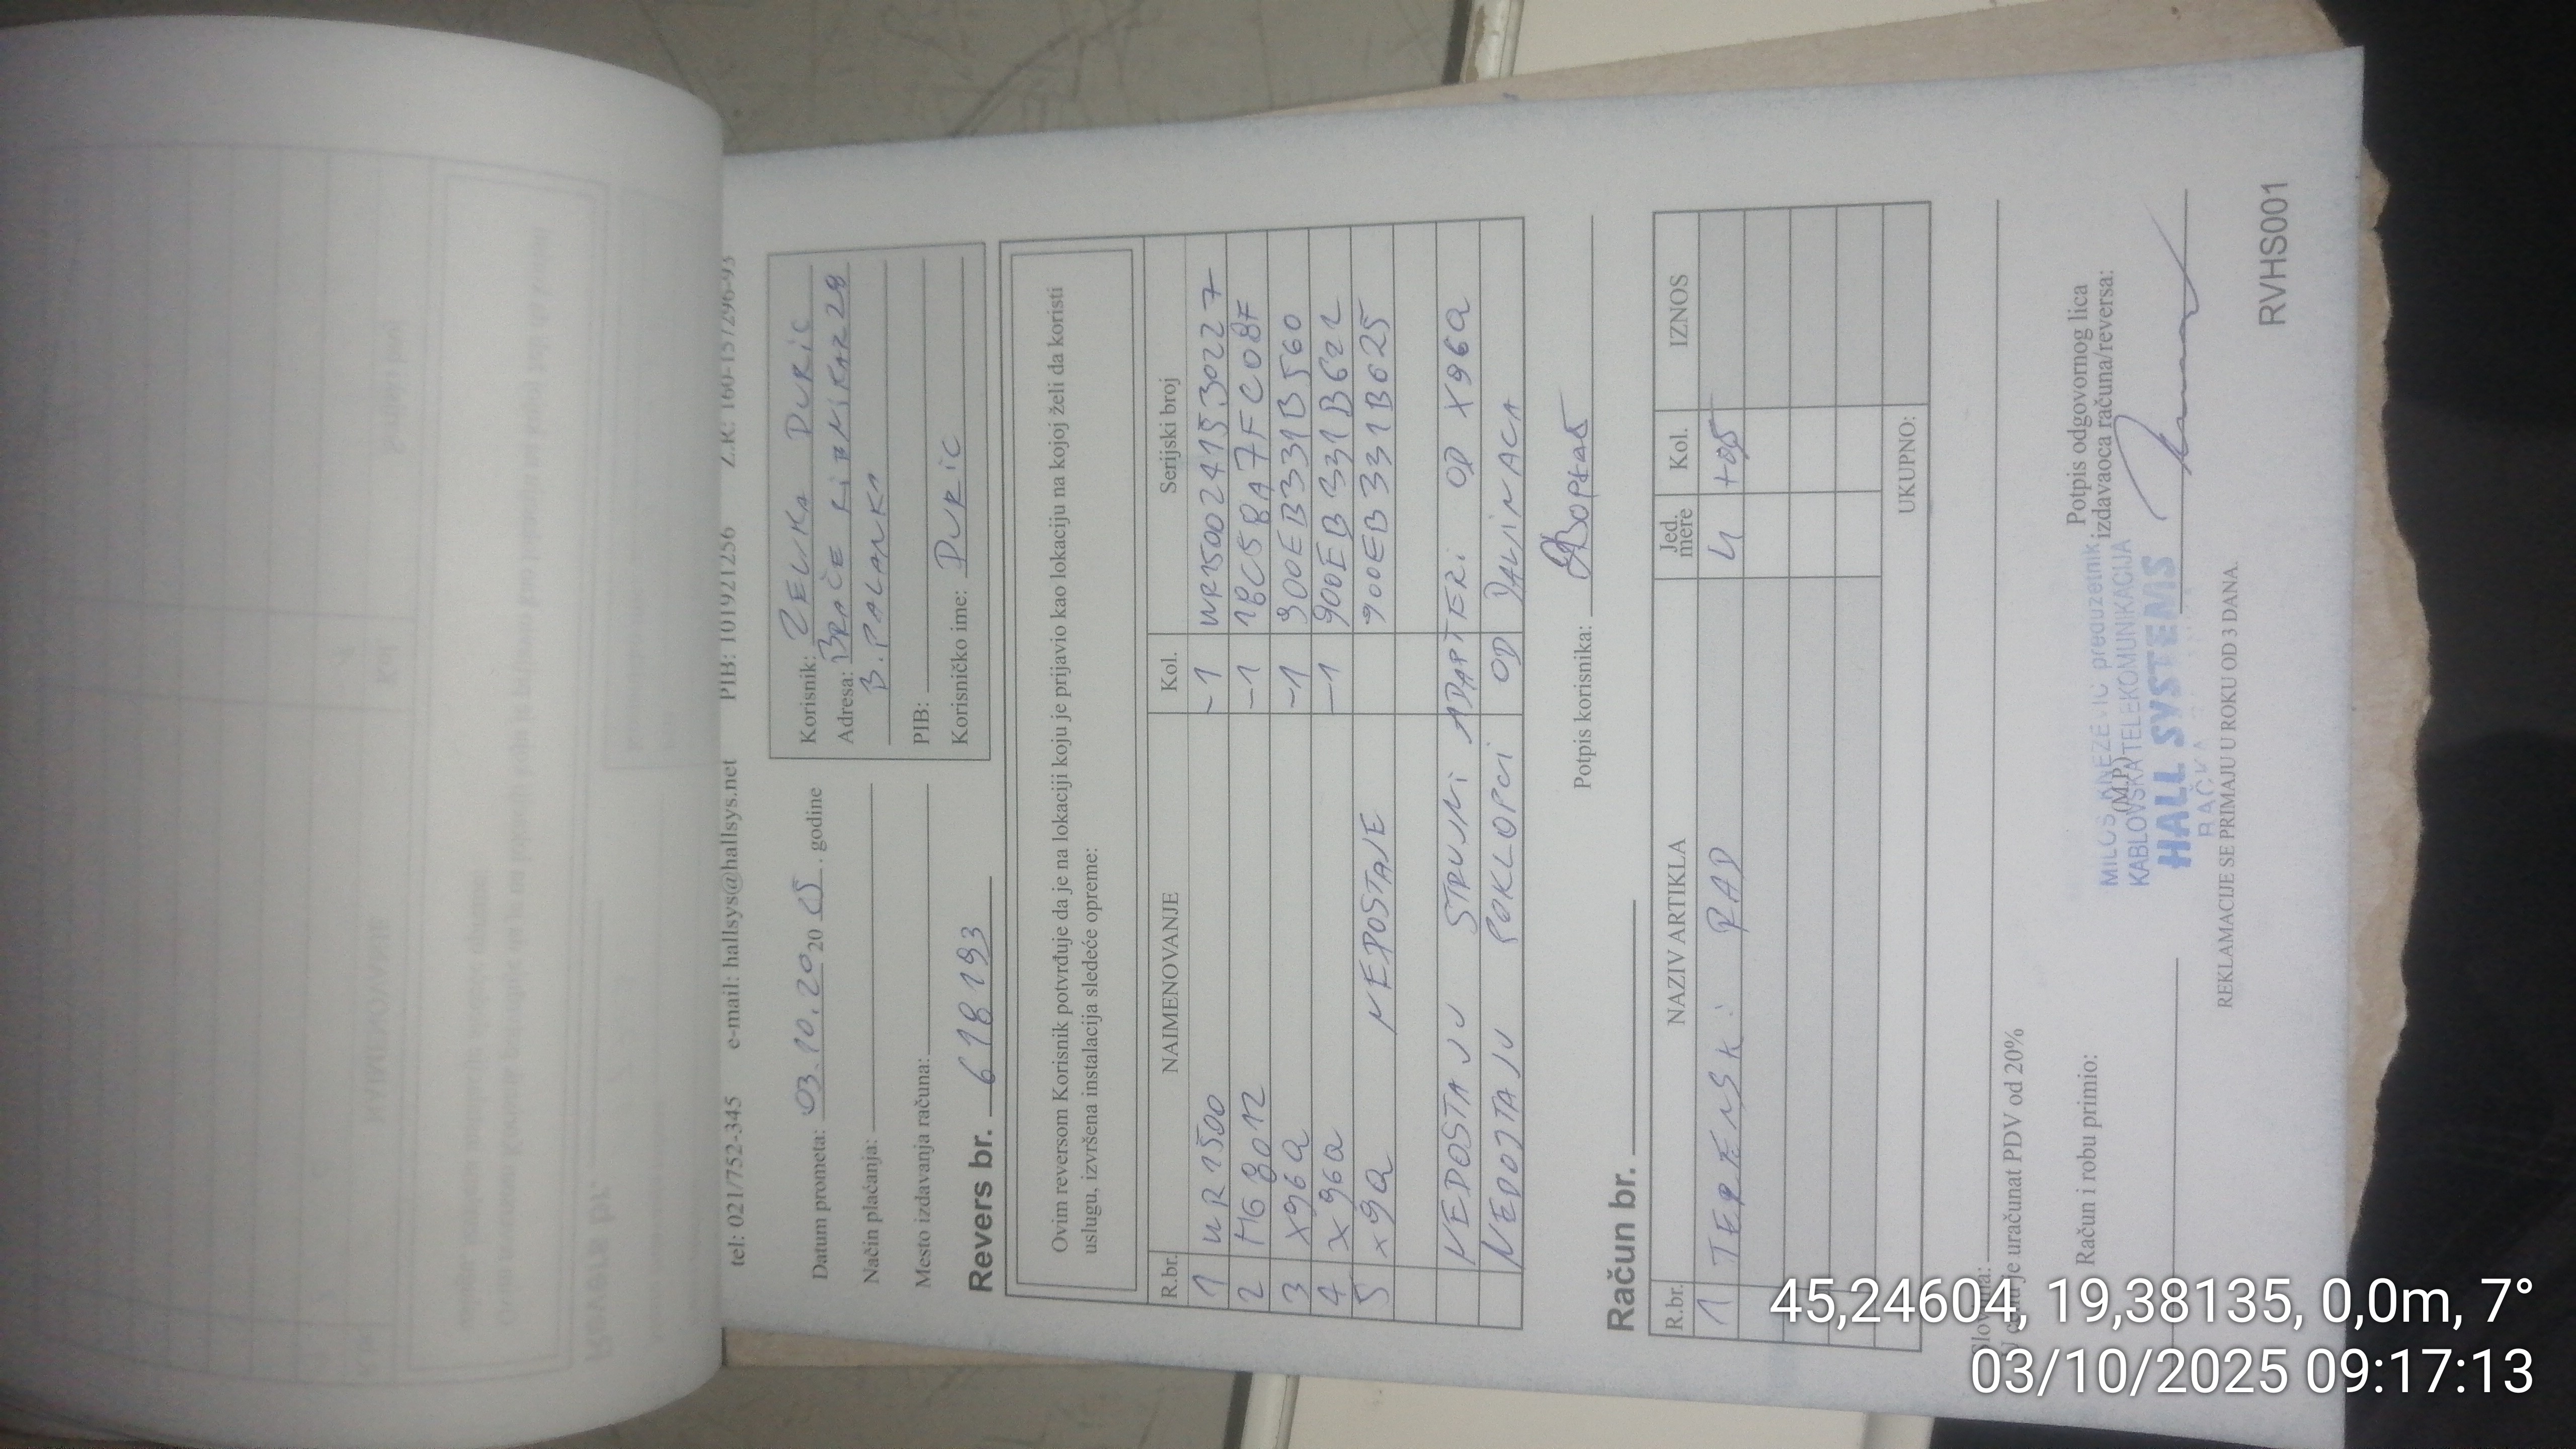 tel: 021/752-345 e-mail: hallsys@hallsys.net PIB: 101921256 Ž.R: 160-157296-93
Datum prometa: 03.10.20 20 25. godine
Način plaćanja:
Mesto izdavanja računa:
Korisnik: ZELIKA DURIC
Adresa: BRAČE RIBNIKAR 28
B. PALANKA
PIB:
Korisničko ime: DURIC
Revers br. 618193
Ovim reversom Korisnik potvrđuje da je na lokaciji koju je prijavio kao lokaciju na kojoj želi da koristi
uslugu, izvršena instalacija sledeće opreme:
R.br. NAIMENOVANJE Kol. Serijski broj
1 WR1500 -1 WR15002415 30227
2 HG8012 -1 18C58A7FC08F
3 X96Q -1 900EB331B560
4 X96Q -1 900EB331B622
5 X9Q NEDOSTAJE 900EB331B625
NEDOSTAJU STRUJNI ADAPTERI OD X96Q
NEDOSTAJU POKLOPCI OD DALJINACA
Potpis korisnika:
Račun br.
R.br. NAZIV ARTIKLA Jed. mere Kol. IZNOS
1 TERENSKI RAD h +0,5
UKUPNO:
Slovima:
U cenu je uračunat PDV od 20%
Račun i robu primio:
(M.P.)
Potpis odgovornog lica
izdavaoca računa/reversa:
MILOŠ KNEŽEVIĆ preduzetnik
KABLOVSKA TELEKOMUNIKACIJA
HALL SYSTEMS
REKLAMACIJE SE PRIMAJU U ROKU OD 3 DANA.
RVHS001
45,24604, 19,38135, 0,0m, 7°
03/10/2025 09:17:13